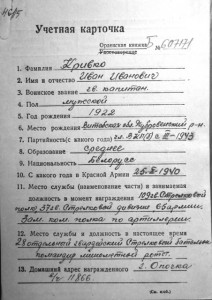 Учетная карточка
Орденская книжка Б № 607171
1. Фамилия Кривко
2. Имя и отчество Иван Иванович
3. Воинское звание гв. капитан
4. Пол мужской
5. Год рождения 1922
6. Место рождения Витебская обл. Дубровенский р-н
7. Партийность (с какого года) чл. ВКП(б) с 1943
8. Образование среднее
9. Национальность Белорус
10. С какого года в Красной Армии 1940
11. Место службы (наименование части) и занимаемая
должность в момент награждения Стрелковый
полк Стрелковой дивизии
Зам. ком. полка по артиллерии.
12. Место службы и должность в настоящее время
28 отдельный гвардейский Стрелковый батальон
командир минометной роты.
13. Домашний адрес награжденного г. Опочка
п/я 11866.
(См. на об.)